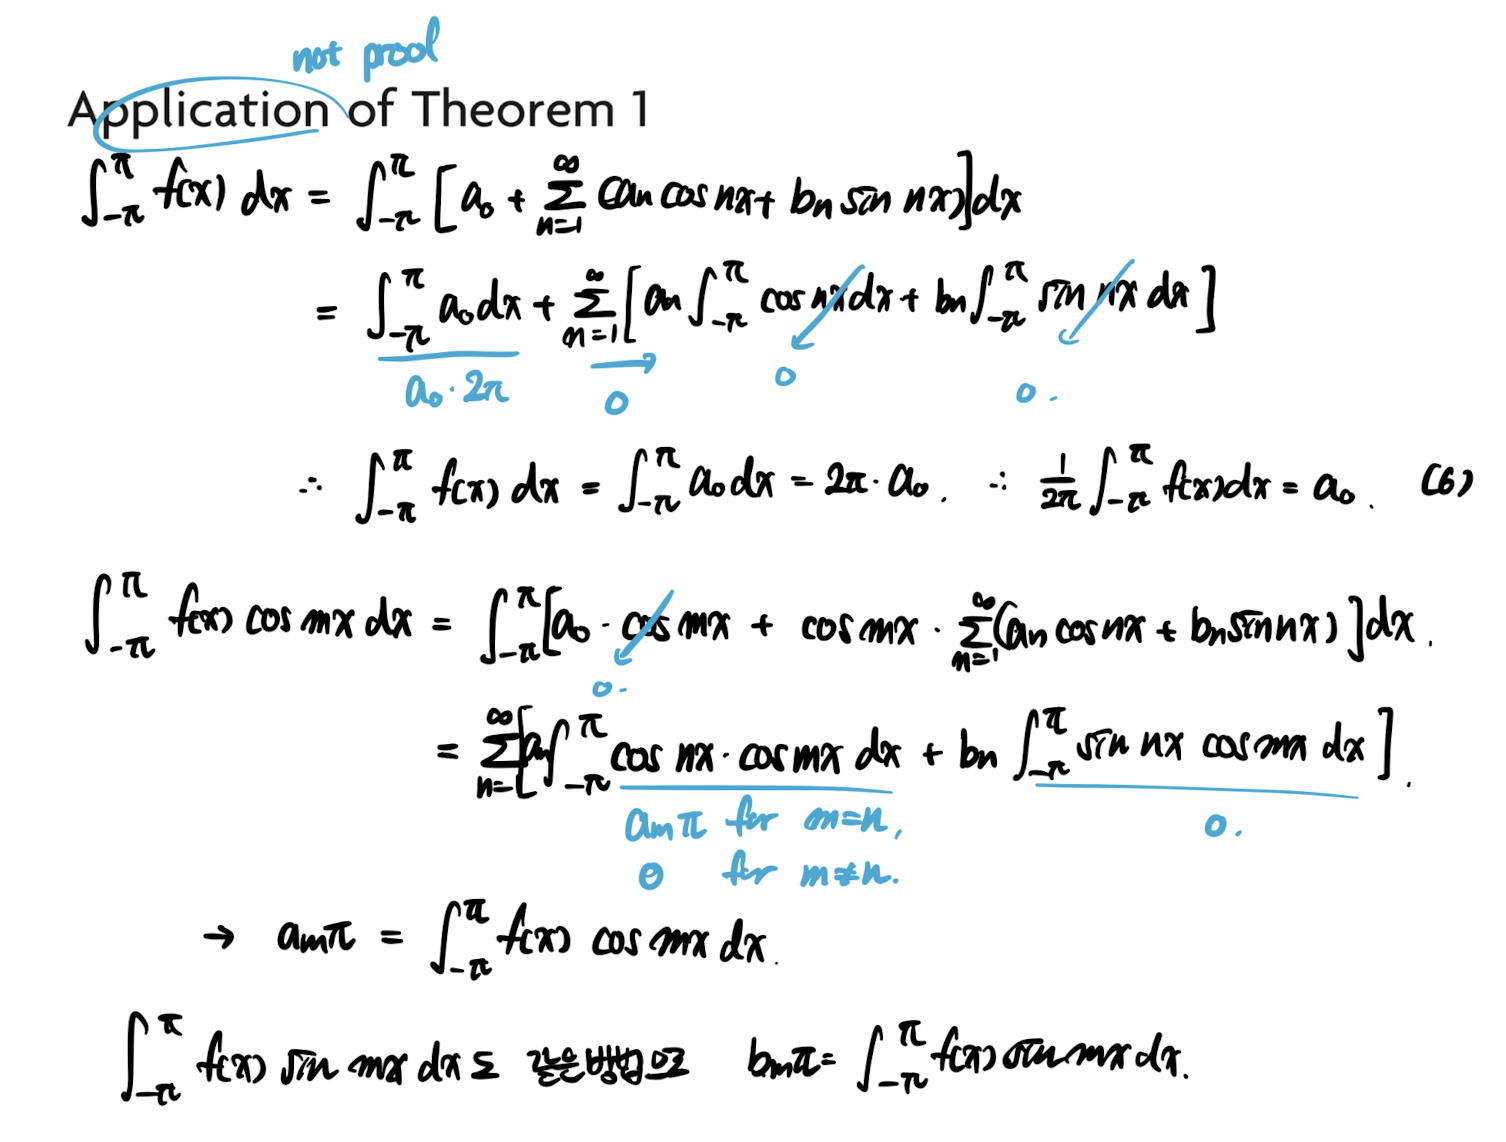 not proof
Application of Theorem 1
∫_{-π}^{π} f(x) dx = ∫_{-π}^{π} [a₀ + Σ_{n=1}^{∞} (aₙ cos nx + bₙ sin nx)] dx
= ∫_{-π}^{π} a₀ dx + Σ_{n=1}^{∞} [aₙ ∫_{-π}^{π} cos nx dx + bₙ ∫_{-π}^{π} sin nx dx]
a₀ · 2π 0 0 0.
∴ ∫_{-π}^{π} f(x) dx = ∫_{-π}^{π} a₀ dx = 2π · a₀. ∴ 1/2π ∫_{-π}^{π} f(x) dx = a₀. (6)
∫_{-π}^{π} f(x) cos mx dx = ∫_{-π}^{π} [a₀ · cos mx + cos mx · Σ_{n=1}^{∞} (aₙ cos nx + bₙ sin nx)] dx.
0.
= Σ_{n=1}^{∞} [aₙ ∫_{-π}^{π} cos nx · cos mx dx + bₙ ∫_{-π}^{π} sin nx cos mx dx].
aₘπ for m=n, 0.
0 for m≠n.
→ aₘπ = ∫_{-π}^{π} f(x) cos mx dx.
∫_{-π}^{π} f(x) sin mx dx도 같은방법으로 bₘπ = ∫_{-π}^{π} f(x) sin mx dx.